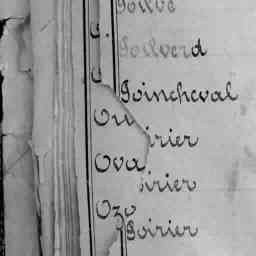 Poilve
Poilverd
Poincheval
Ou irier
Ova irier
Ozo
Poirier